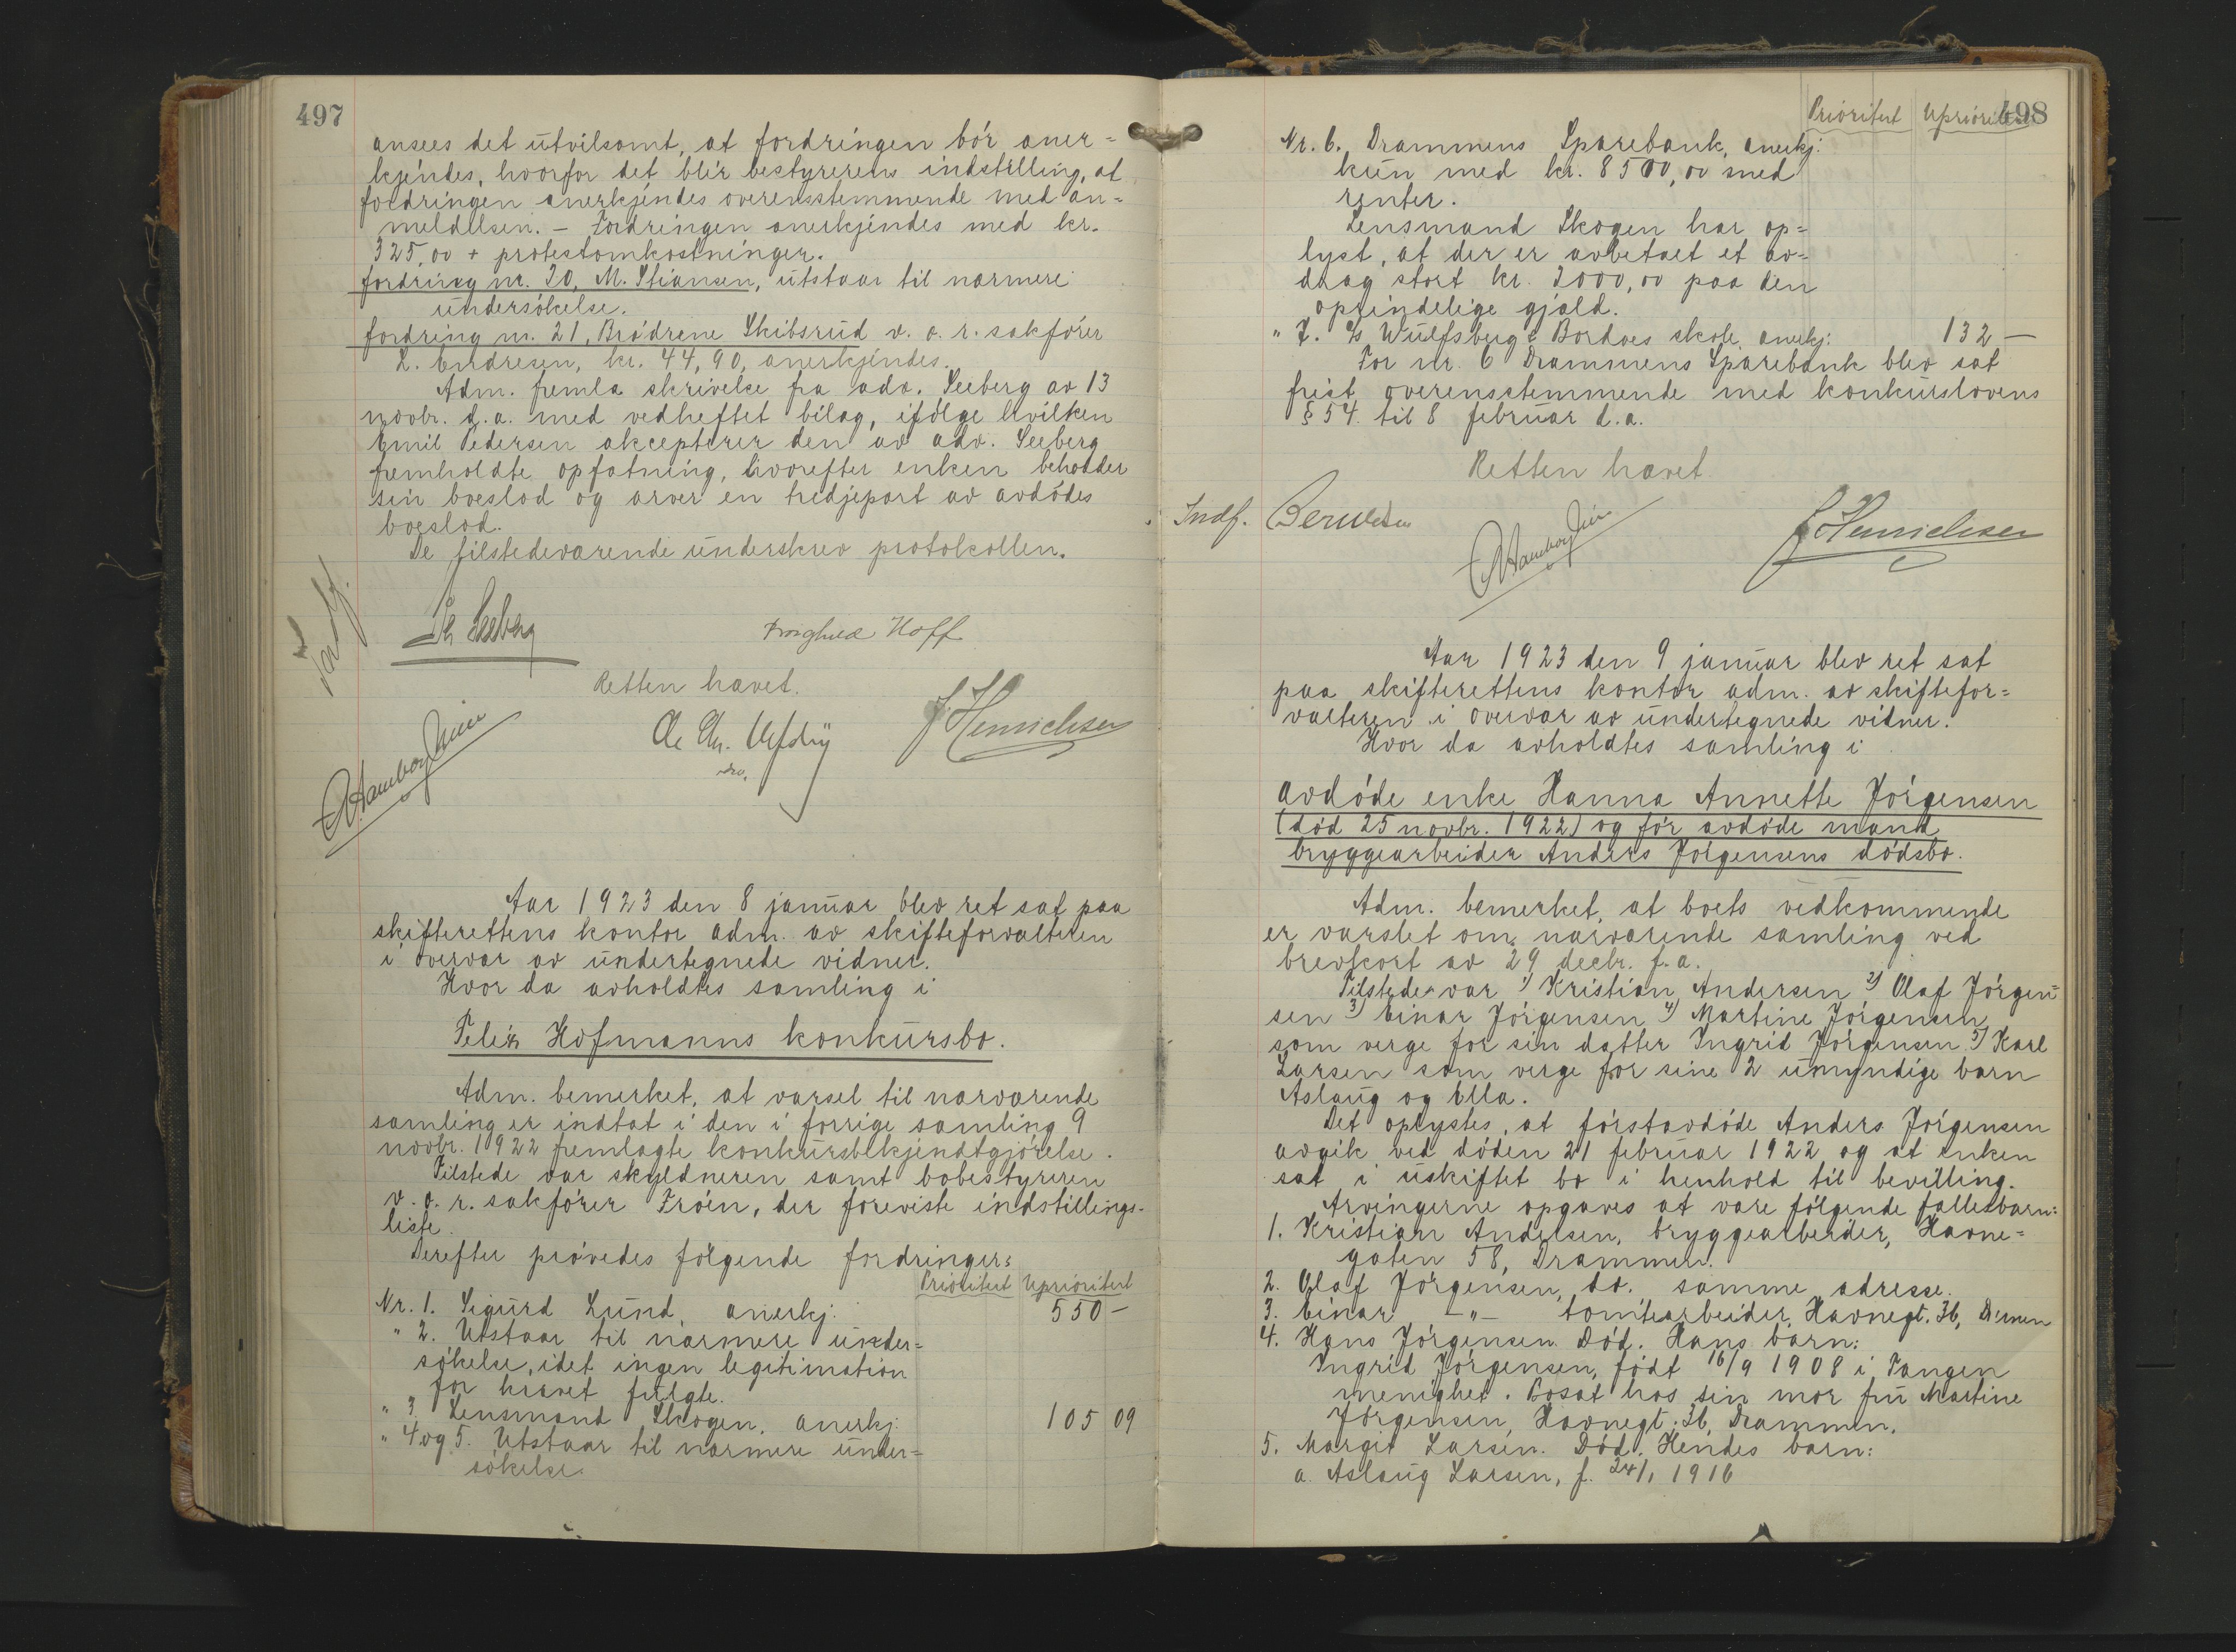 497
ansees det utvilsomt, at fordringen bør aner=
kjendes, hvorfor det blir bestyrerens indstilling, at
fordringen anerkjendes overensstemmende med an=
meldelsen. – Fordringen anerkjendes med kr.
325,00 + protestomkostninger.
fordring nr. 20, M. Stiansen, utstaar til nærmere
undersøkelse.
fordring nr. 21, Brødrene Skibsrud v. o. r. sakfører
L. Endresen, kr. 44,90, anerkjendes.
Adm. fremla skrivelse fra adv. Seeberg av 13
novbr. d.a. med vedheftet bilag, ifølge hvilken
Emil Pedersen akcepterer den av adv. Seeberg
fremholdte opfatning, hvorefter enken beholder
sin boeslod og arver en tredjepart av avdødes
boeslod.
De tilstedeværende underskrev protokollen.
Seeberg
Hoff
Retten hævet.
J Henrichsen
Aar 1923 den 8 januar blev ret sat paa
skifterettens kontor adm. av skifteforvalteren
i overvær av undertegnede vidner.
Hvor da avholdtes samling i
Felix Hofmanns konkursbo.
Adm. bemerket, at varsel til nærværende
samling er indtat i den i forrige samling 9
novbr. 1922 fremlagte konkursbekjendtgjørelse.
Tilstede var skyldneren samt bobestyreren
o. r. sakfører Frøen, der foreviste indstillings-
liste.
Derefter prøvedes følgende fordringer:
Prioritert Uprioritert
Nr. 1. Sigurd Lund, anerkj. 550 –
" 2. Utstaar til nærmere under=
søkelse, idet ingen legitimation
for kravet fulgte.
" 3. Lensmand Skogen, anerkj. 105 09
" 4 og 5. Utstaar til nærmere under=
søkelse.
498
Prioritert Uprioritert
Nr. 6. Drammens Sparebank, anerkj:
kun med kr. 8500,00 med
renter.
Lensmand Skogen har op=
lyst, at der er avbetalt et av=
drag stort kr. 2000,00 paa den
oprindelige gjæld.
" 7. A/s Wulfsberg & Bordoes skofb. anerkj: 132 –
For nr. 6 Drammens Sparebank blev sat
frist overensstemmende med konkurslovens
§ 54. til 8 februar d.a.
Retten hævet.
Indf.
J Henrichsen
Aar 1923 den 9 januar blev ret sat
paa skifterettens kontor adm. av skiftefor=
valteren i overvær av undertegnede vidner.
Hvor da avholdtes samling i
avdøde enke Hanna Annette Jørgensen
(død 25 novbr. 1922) og før avdøde mand
bryggearbeider Anders Jørgensens dødsbo.
Adm. bemerket, at boets vedkommende
er varslet om nærværende samling ved
brevkort av 29 decbr. f.a.
Tilstede var 1) Kristian Andersen 2) Olaf Jørgen=
sen 3) Einar Jørgensen 4) Martine Jørgensen
som verge for sin datter Ingrid Jørgensen 5) Karl
Larsen som verge for sine 2 umyndige barn
Aslaug og Ella.
Det oplystes, at førstavdøde Anders Jørgensen
avgik ved døden 21 februar 1922 og at enken
sat i uskiftet bo i henhold til bevilling.
Arvingerne opgaves at være følgende fællesbarn:
1. Kristian Andersen, bryggearbeider, Havne=
gaten 58, Drammen.
2. Olaf Jørgensen, do. samme adresse.
3. Einar – " – tomtearbeider, Havnegt. 36, D:men
4. Hans Jørgensen. Død. Hans barn:
Ingrid Jørgensen, født 16/9 1908 i Tangen
menighet. Bosat hos sin mor fru Martine
Jørgensen, Havnegt. 36, Drammen.
5. Margit Larsen. Død. Hendes barn:
a. Aslaug Larsen, f. 24/1 1916